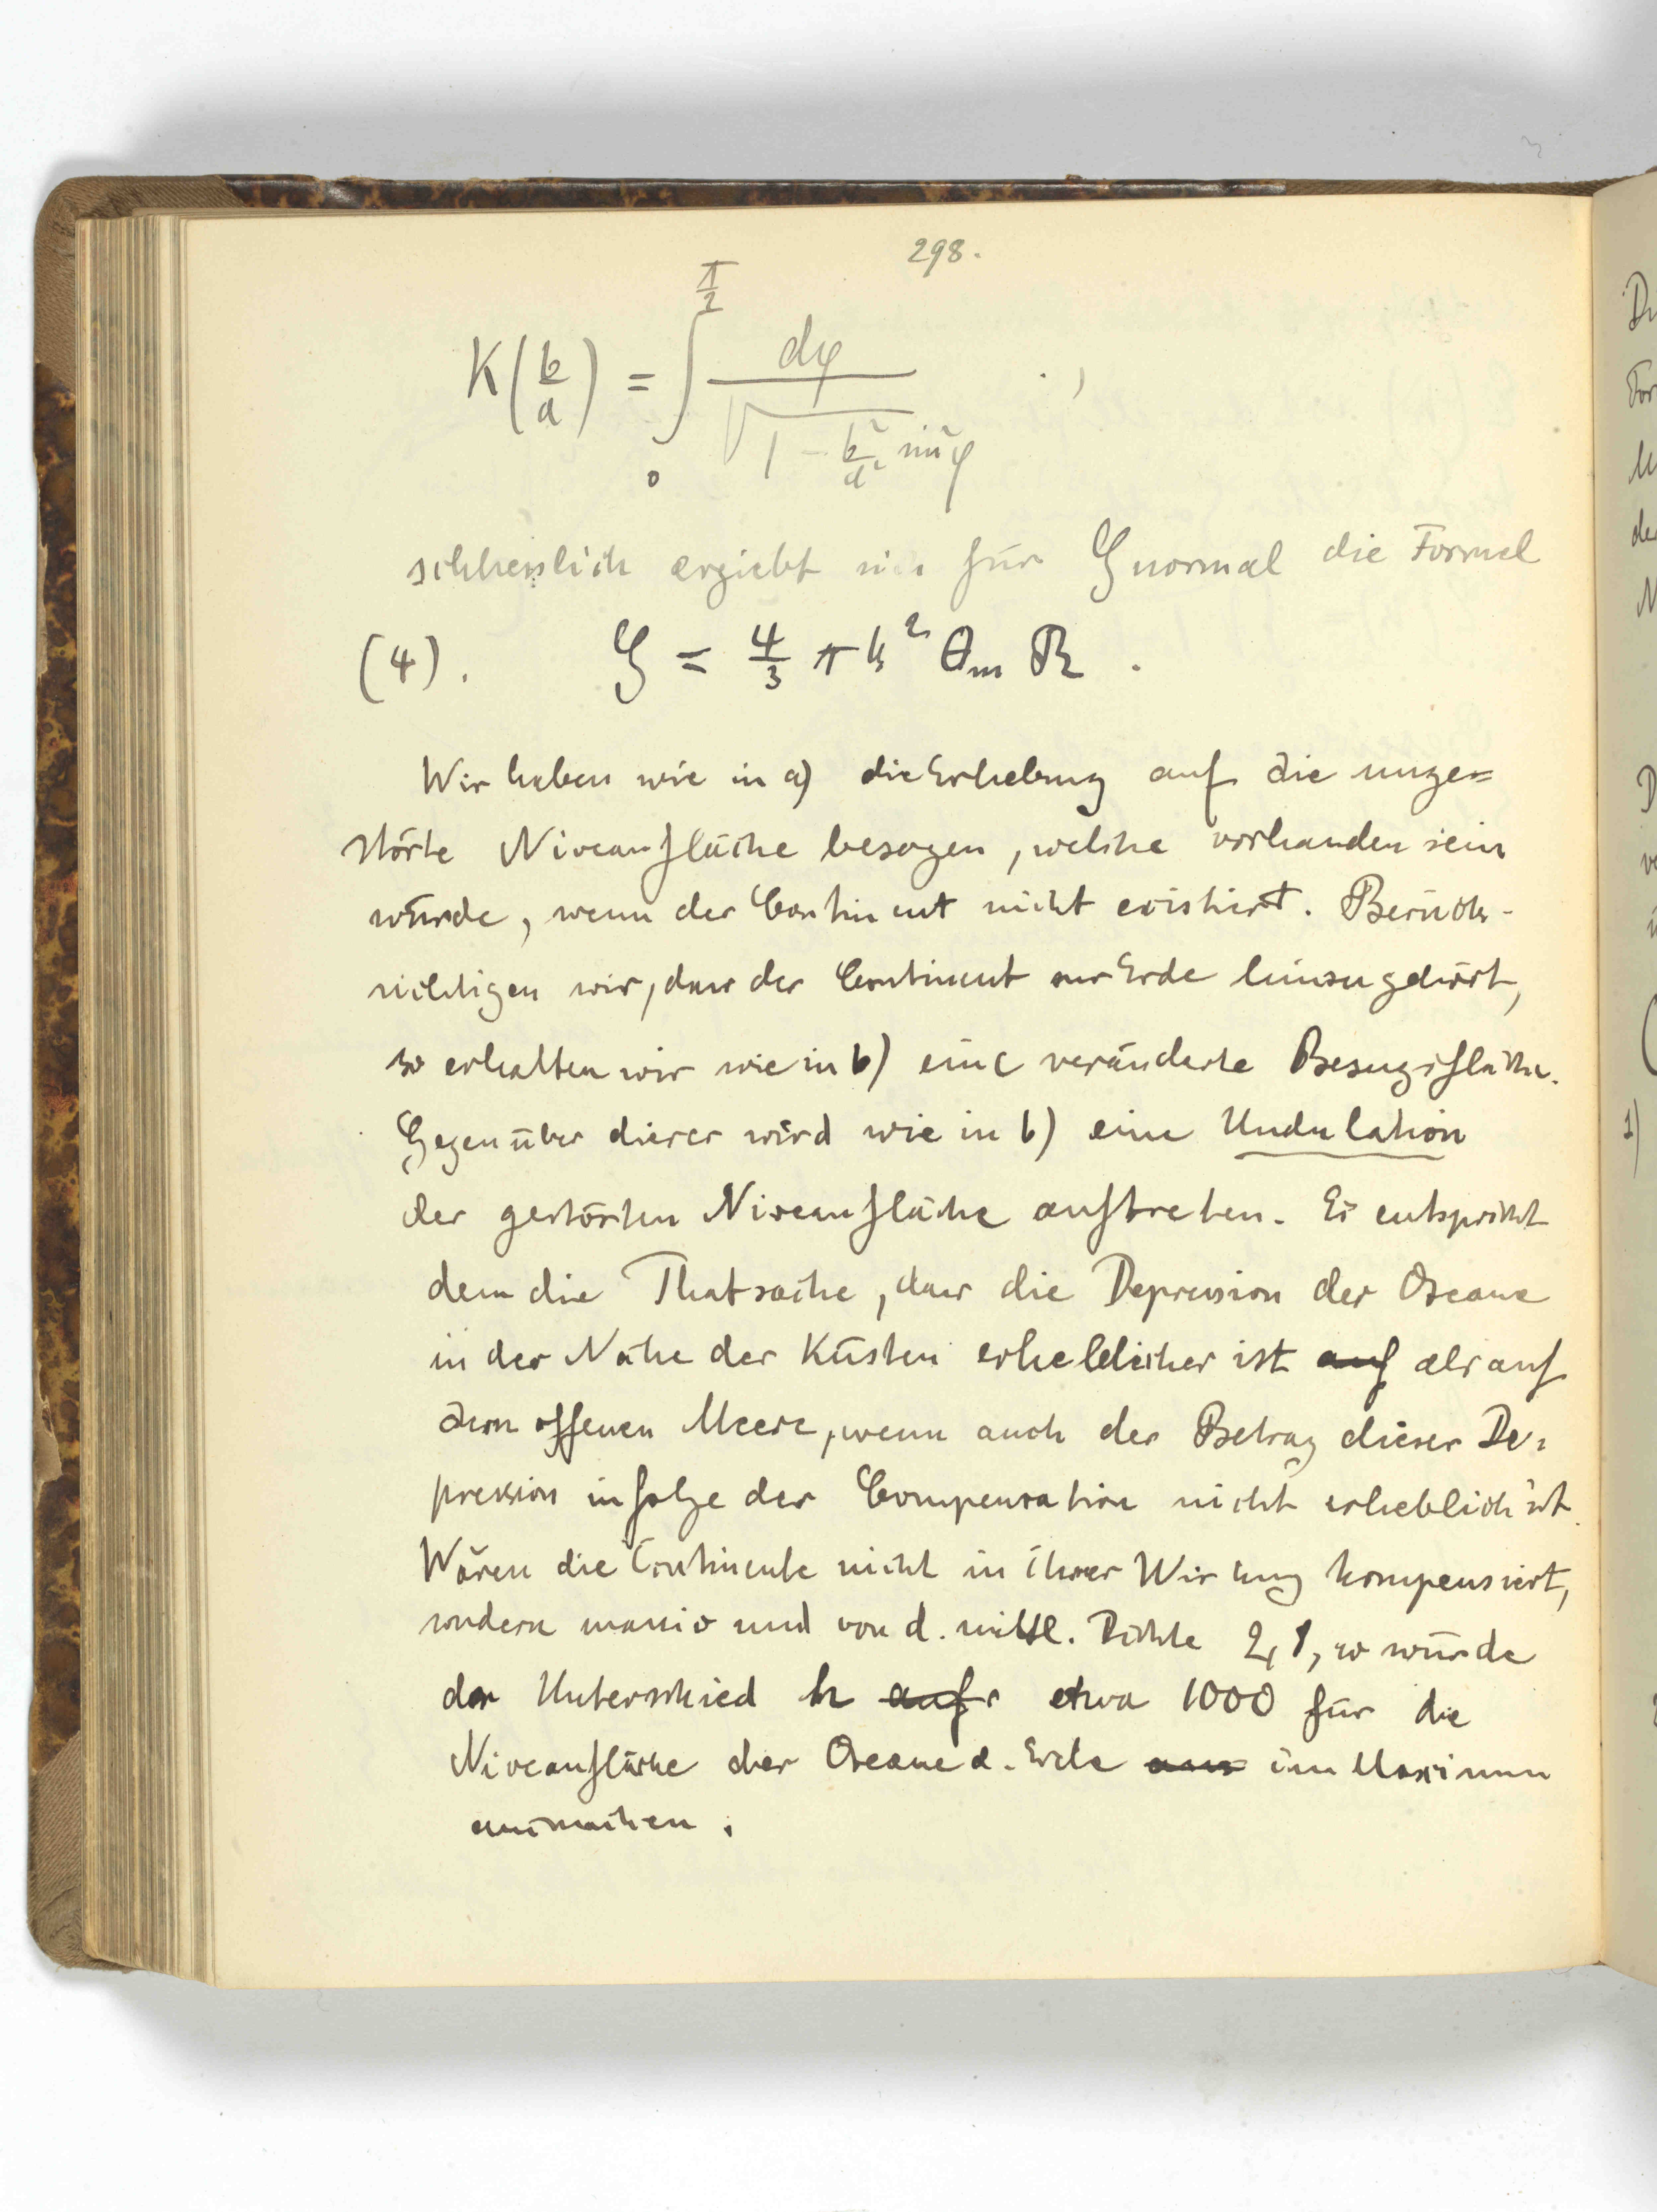 298.
K(b/a) = ∫₀^{π/2} dφ / √(1 - b²/a² sin²φ) .,
schliesslich ergiebt sich für G normal die Formel
(4). G = 4/3 π k² θm R .
Wir haben wie in a) die Erhebung auf die unge=
störte Niveaufläche bezogen, welche vorhanden sein
würde, wenn der Continent nicht existirt. Berück-
sichtigen wir, dass der Continent zur Erde hinzugehört,
so erhalten wir wie in b) eine veränderte Bezugsfläche.
Gegenüber dieser wird wie in b) eine Undulation
der gestörten Niveaufläche auftreten. Es entspricht
dem die Thatsache, dass die Depression der Oceane
in der Nähe der Küsten erheblicher ist auf als auf
dem offenen Meere, wenn auch der Betrag dieser De=
pression infolge der Compensation nicht erheblich ist.
Wären die Continente nicht in ihrer Wirkung kompensiert,
sondern massiv und von d. mittl. Dichte 2,8, so würde
der Unterschied h auf etwa 1000 für die
Niveaufläche der Oceane d. Erde aus im Maximum
ausmachen.